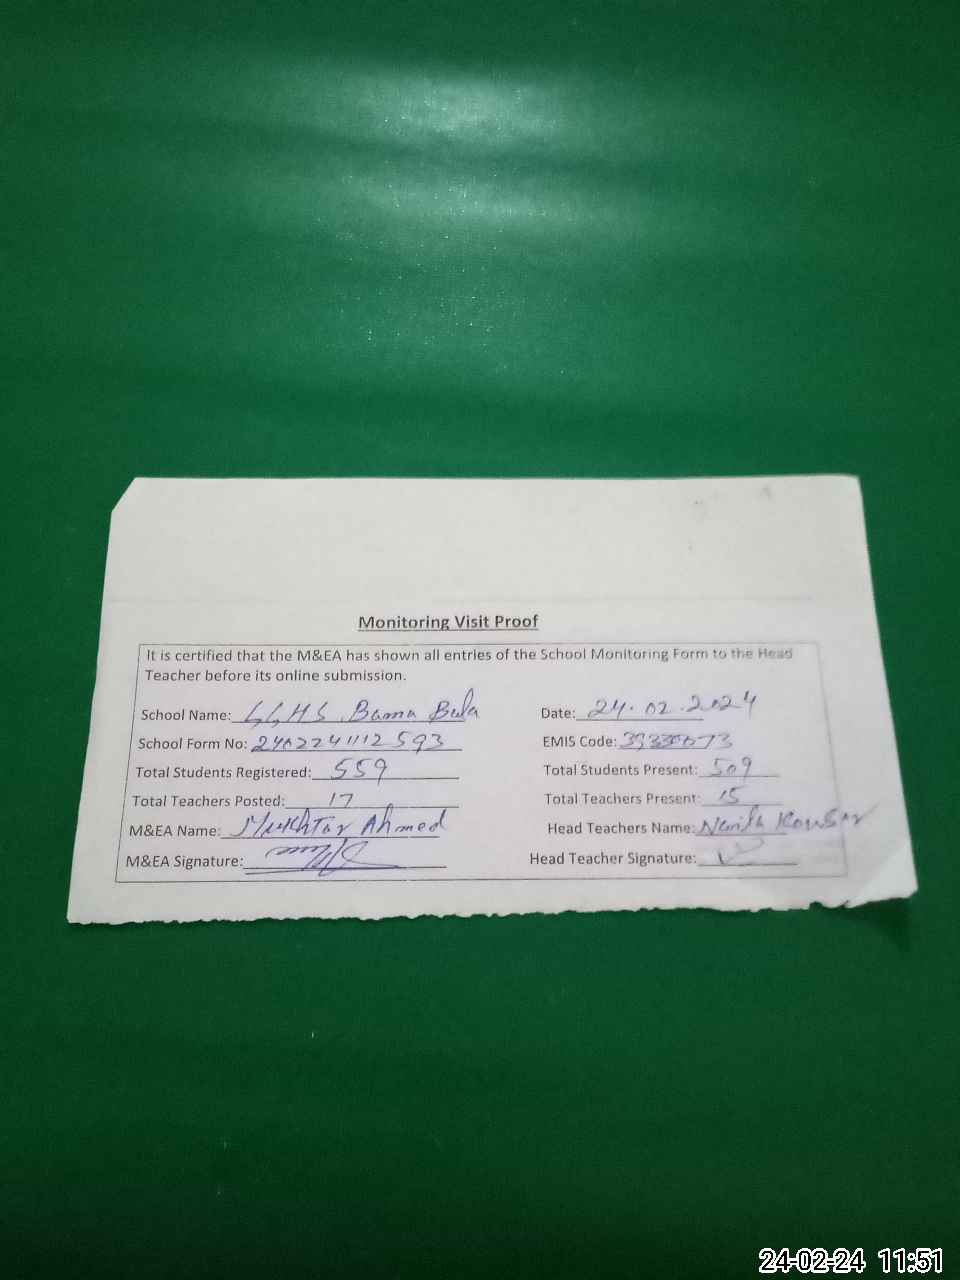 Monitoring Visit Proof
It is certified that the M&EA has shown all entries of the School Monitoring Form to the Head
Teacher before its online submission.
School Name: GGHS Bama Bala Date: 24.02.2024
School Form No: 2402241112593 EMIS Code:
Total Students Registered: 559 Total Students Present: 509
Total Teachers Posted: 17 Total Teachers Present: 15
M&EA Name: Mukhtar Ahmed Head Teachers Name: Kowsar
M&EA Signature: Head Teacher Signature:
24-02-24 11:51